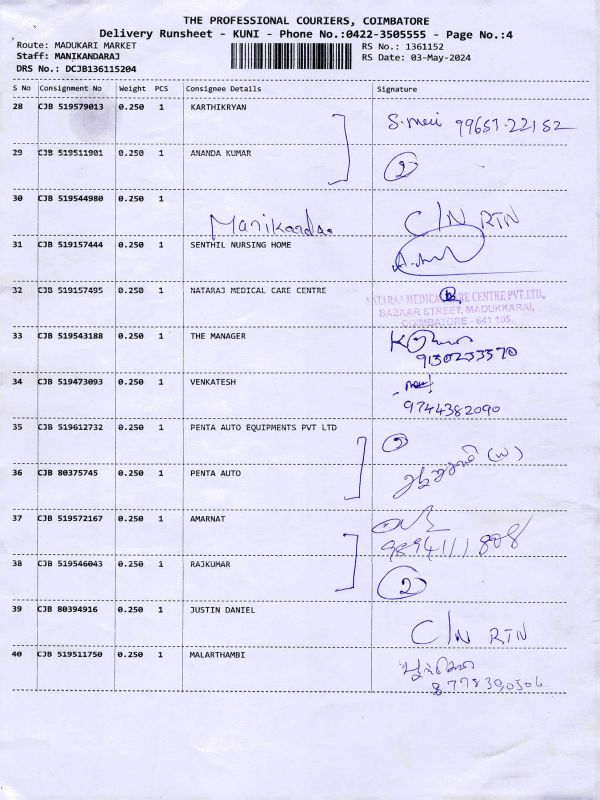 THE PROFESSIONAL COURIERS, COIMBATORE
Delivery Runsheet - KUNI - Phone No.:0422-3505555 - Page No.:4
Route: MADUKARI MARKET
RS No.: 1361152
Staff: MANIKANDARAJ
RS Date: 03-May-2024
DRS No.: DCJB136115204
S No Consignment No Weight PCS Consignee Details Signature
28 CJB 519579013 0.250 1 KARTHIKRYAN
99657-22152
29 CJB 519511901 0.250 1 ANANDA KUMAR
2
30 CJB 519544980 0.250 1
C/N RTN
31 CJB 519157444 0.250 1 SENTHIL NURSING HOME
32 CJB 519157495 0.250 1 NATARAJ MEDICAL CARE CENTRE
NATARAJ MEDICAL CARE CENTRE PVT.LTD.,
BAZAAR STREET, MADUKKARAI,
COIMBATORE - 641 105.
33 CJB 519543188 0.250 1 THE MANAGER
34 CJB 519473093 0.250 1 VENKATESH
9744382090
35 CJB 519612732 0.250 1 PENTA AUTO EQUIPMENTS PVT LTD
2
36 CJB 80375745 0.250 1 PENTA AUTO
37 CJB 519572167 0.250 1 AMARNAT
9894111808
38 CJB 519546043 0.250 1 RAJKUMAR
2
39 CJB 80394916 0.250 1 JUSTIN DANIEL
C/N RTN
40 CJB 519511750 0.250 1 MALARTHAMBI
8778390506